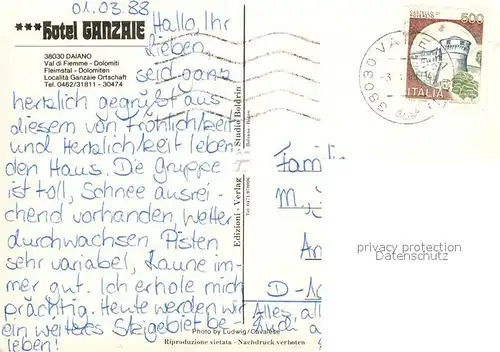 01.03.88
***hotel GANZAIE
38030 DAIANO
Val di Fiemme - Dolomiti
Fleimstal - Dolomiten
Località Ganzaie Ortschaft
Tel. 0462/31811 - 30474
Hallo, Ihr
Lieben,
seid ganz
herzlich gegrüßt aus
diesem von Fröhlichkeit
und Herzlichkeit leben-
den Haus. Die Gruppe
ist toll, Schnee ausrei-
chend vorhanden, Wetter
durchwachsen, Pisten
sehr variabel, Laune im-
mer gut. Ich erhole mich
prächtig. Heute werden wir
ein weiteres Skigebiet be-
leben!
Edizioni - Verlag - Studio Boldrin
Photo by Ludwig/Cavalese
Riproduzione vietata - Nachdruck verboten
500
ITALIA
38030
Famili
M.
An
D-
Alles
privacy protection
watermark